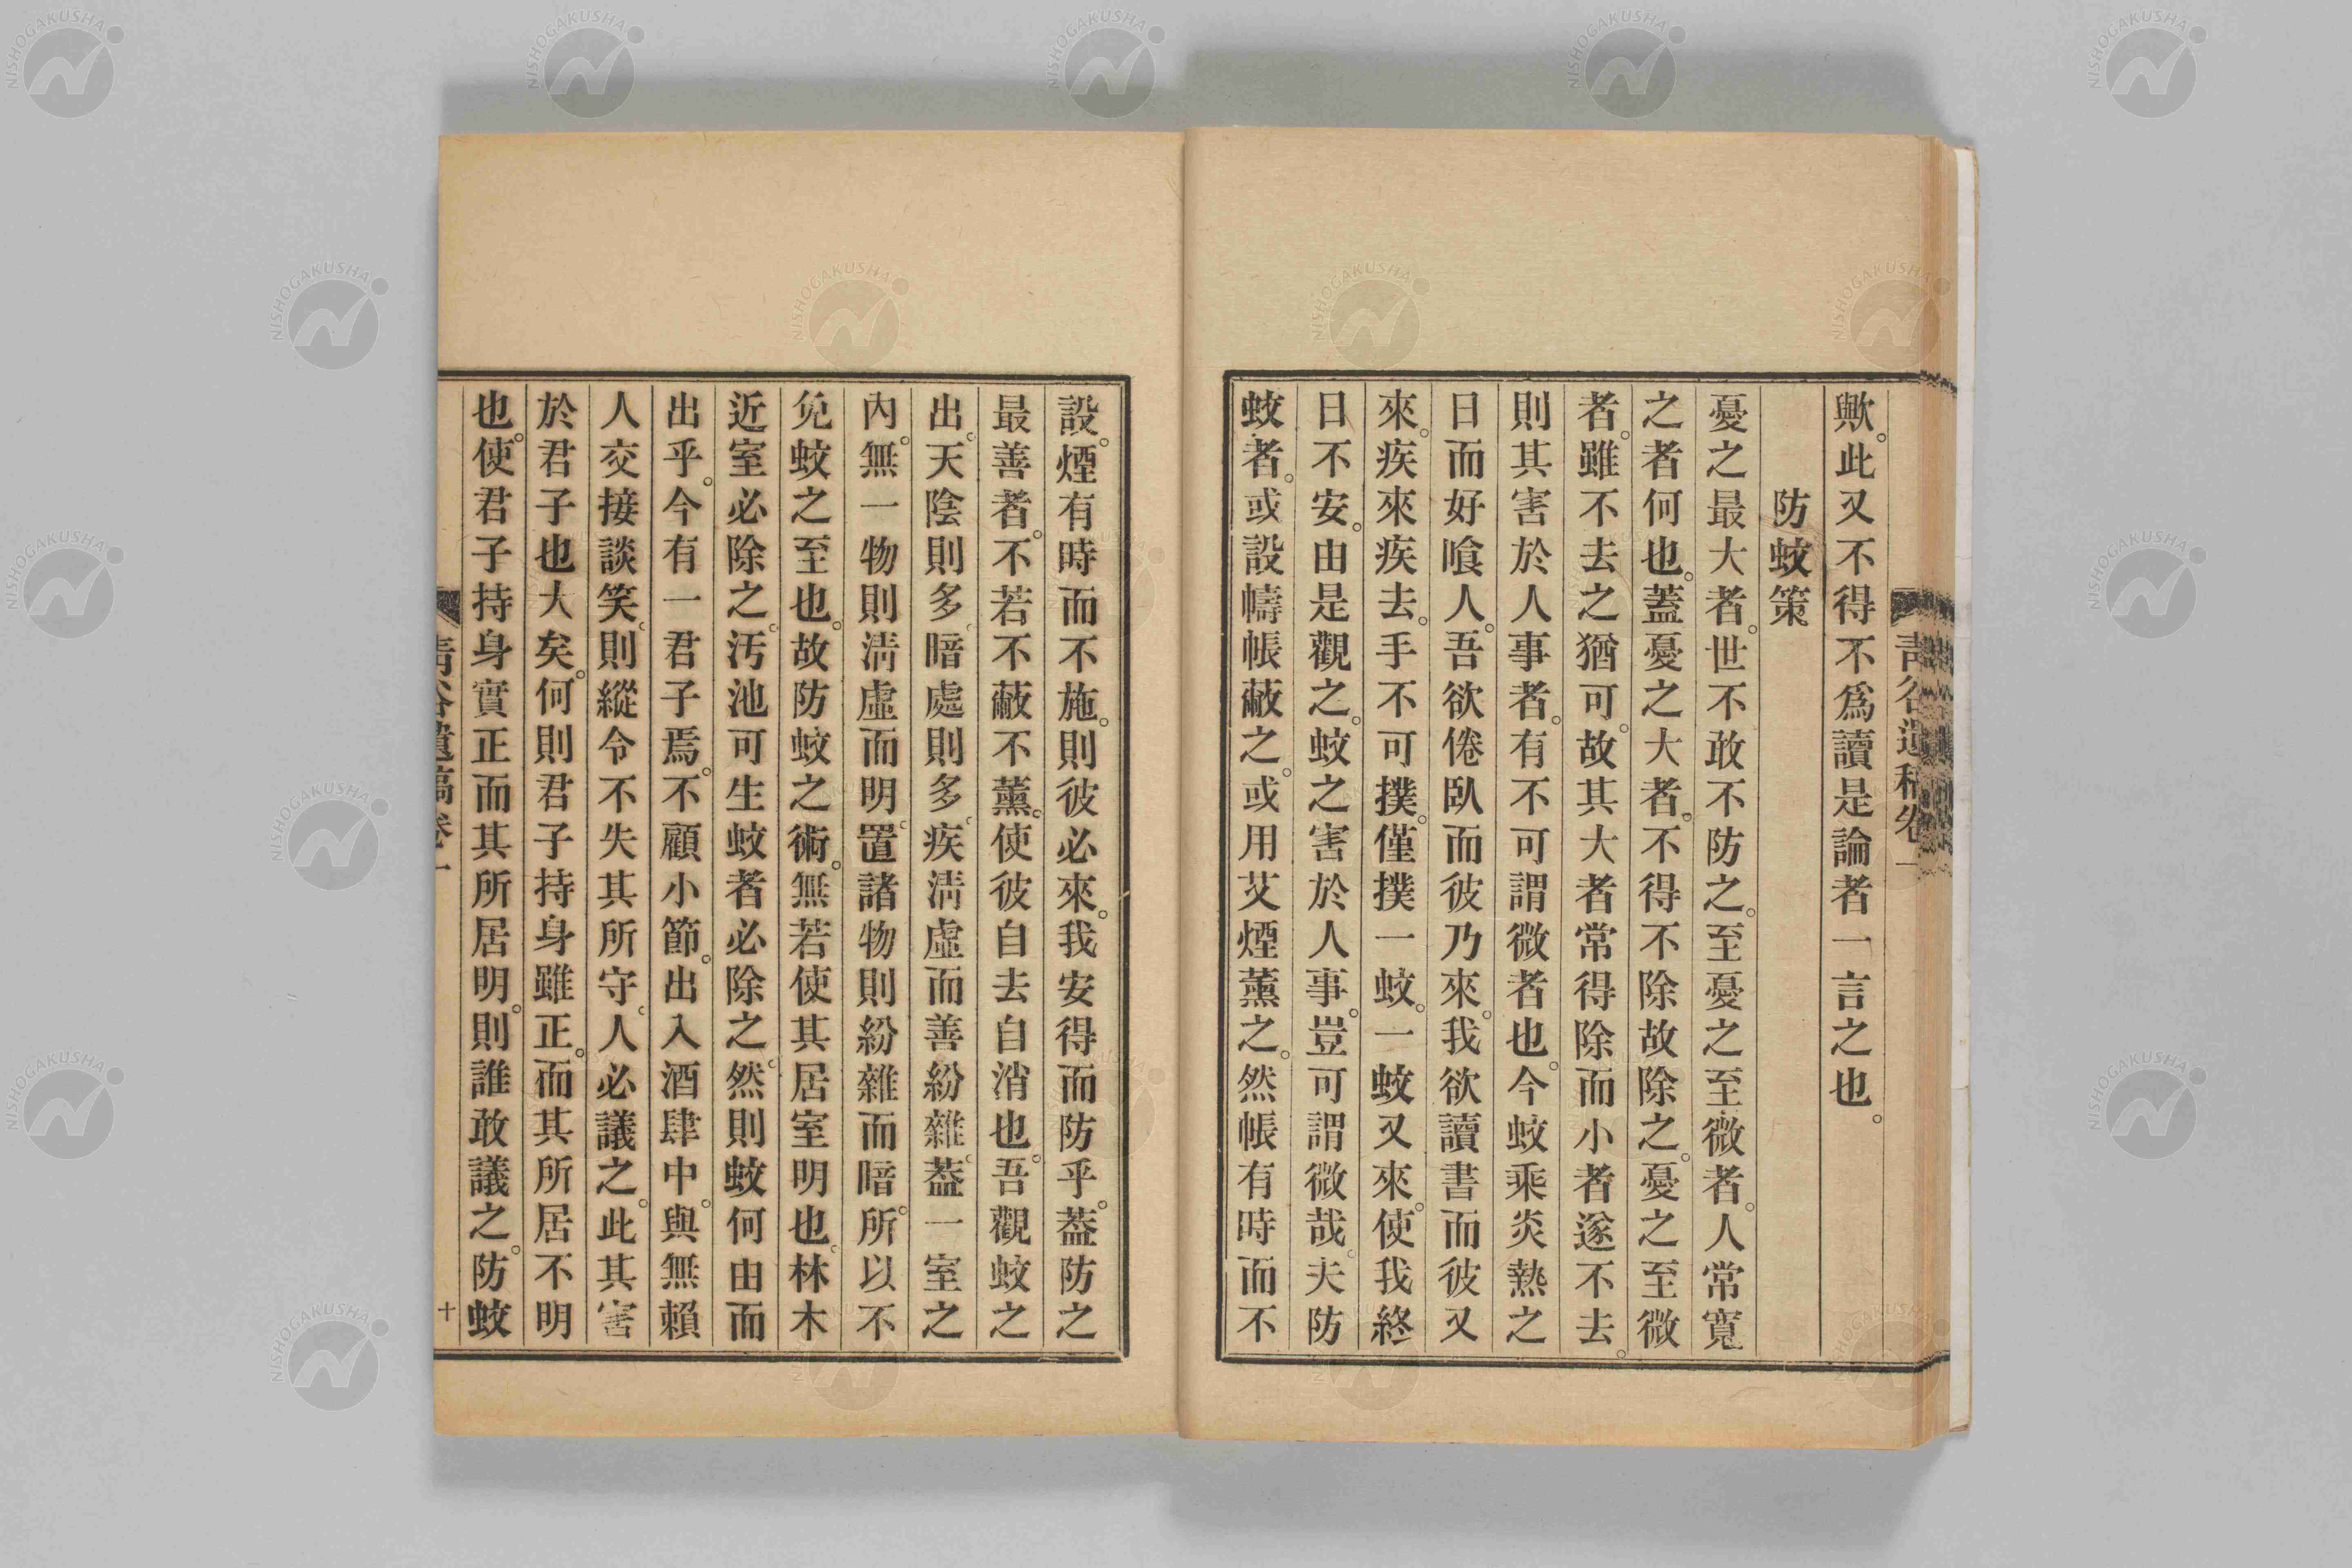 靑谷遺稿卷一
歟。此又不得不爲讀是論者一言之也。
防蚊策
憂之最大者。世不敢不防之。至憂之至微者。人常寬
之者何也。蓋憂之大者。不得不除故除之。憂之至微
者。雖不去之猶可。故其大者常得除而小者遂不去。
則其害於人事者。有不可謂微者也。今蚊乘炎熱之
日而好喰人。吾欲倦臥而彼乃來。我欲讀書而彼又
來。疾來疾去。手不可撲。僅撲一蚊。一蚊又來。使我終
日不安。由是觀之。蚊之害於人事。豈可謂微哉。夫防
蚊者。或設幬帳蔽之。或用艾煙薰之。然帳有時而不
設。煙有時而不施。則彼必來。我安得而防乎。葢防之
最善者。不若不蔽不薰。使彼自去自消也。吾觀蚊之
出。天陰則多。暗處則多。疾淸虛而善紛雜。葢一室之
內。無一物則淸虛而明。置諸物則紛雜而暗。所以不
免蚊之至也。故防蚊之術。無若使其居室明也。林木
近室必除之。汚池可生蚊者必除之。然則蚊何由而
出乎。今有一君子焉。不顧小節。出入酒肆中。與無賴
人交接談笑。則縱令不失其所守。人必議之。此其害
於君子也大矣。何則君子持身雖正。而其所居不明
也。使君子持身實正而其所居明。則誰敢議之。防蚊
靑谷遺稿卷一
十
NISHOGAKUSHA